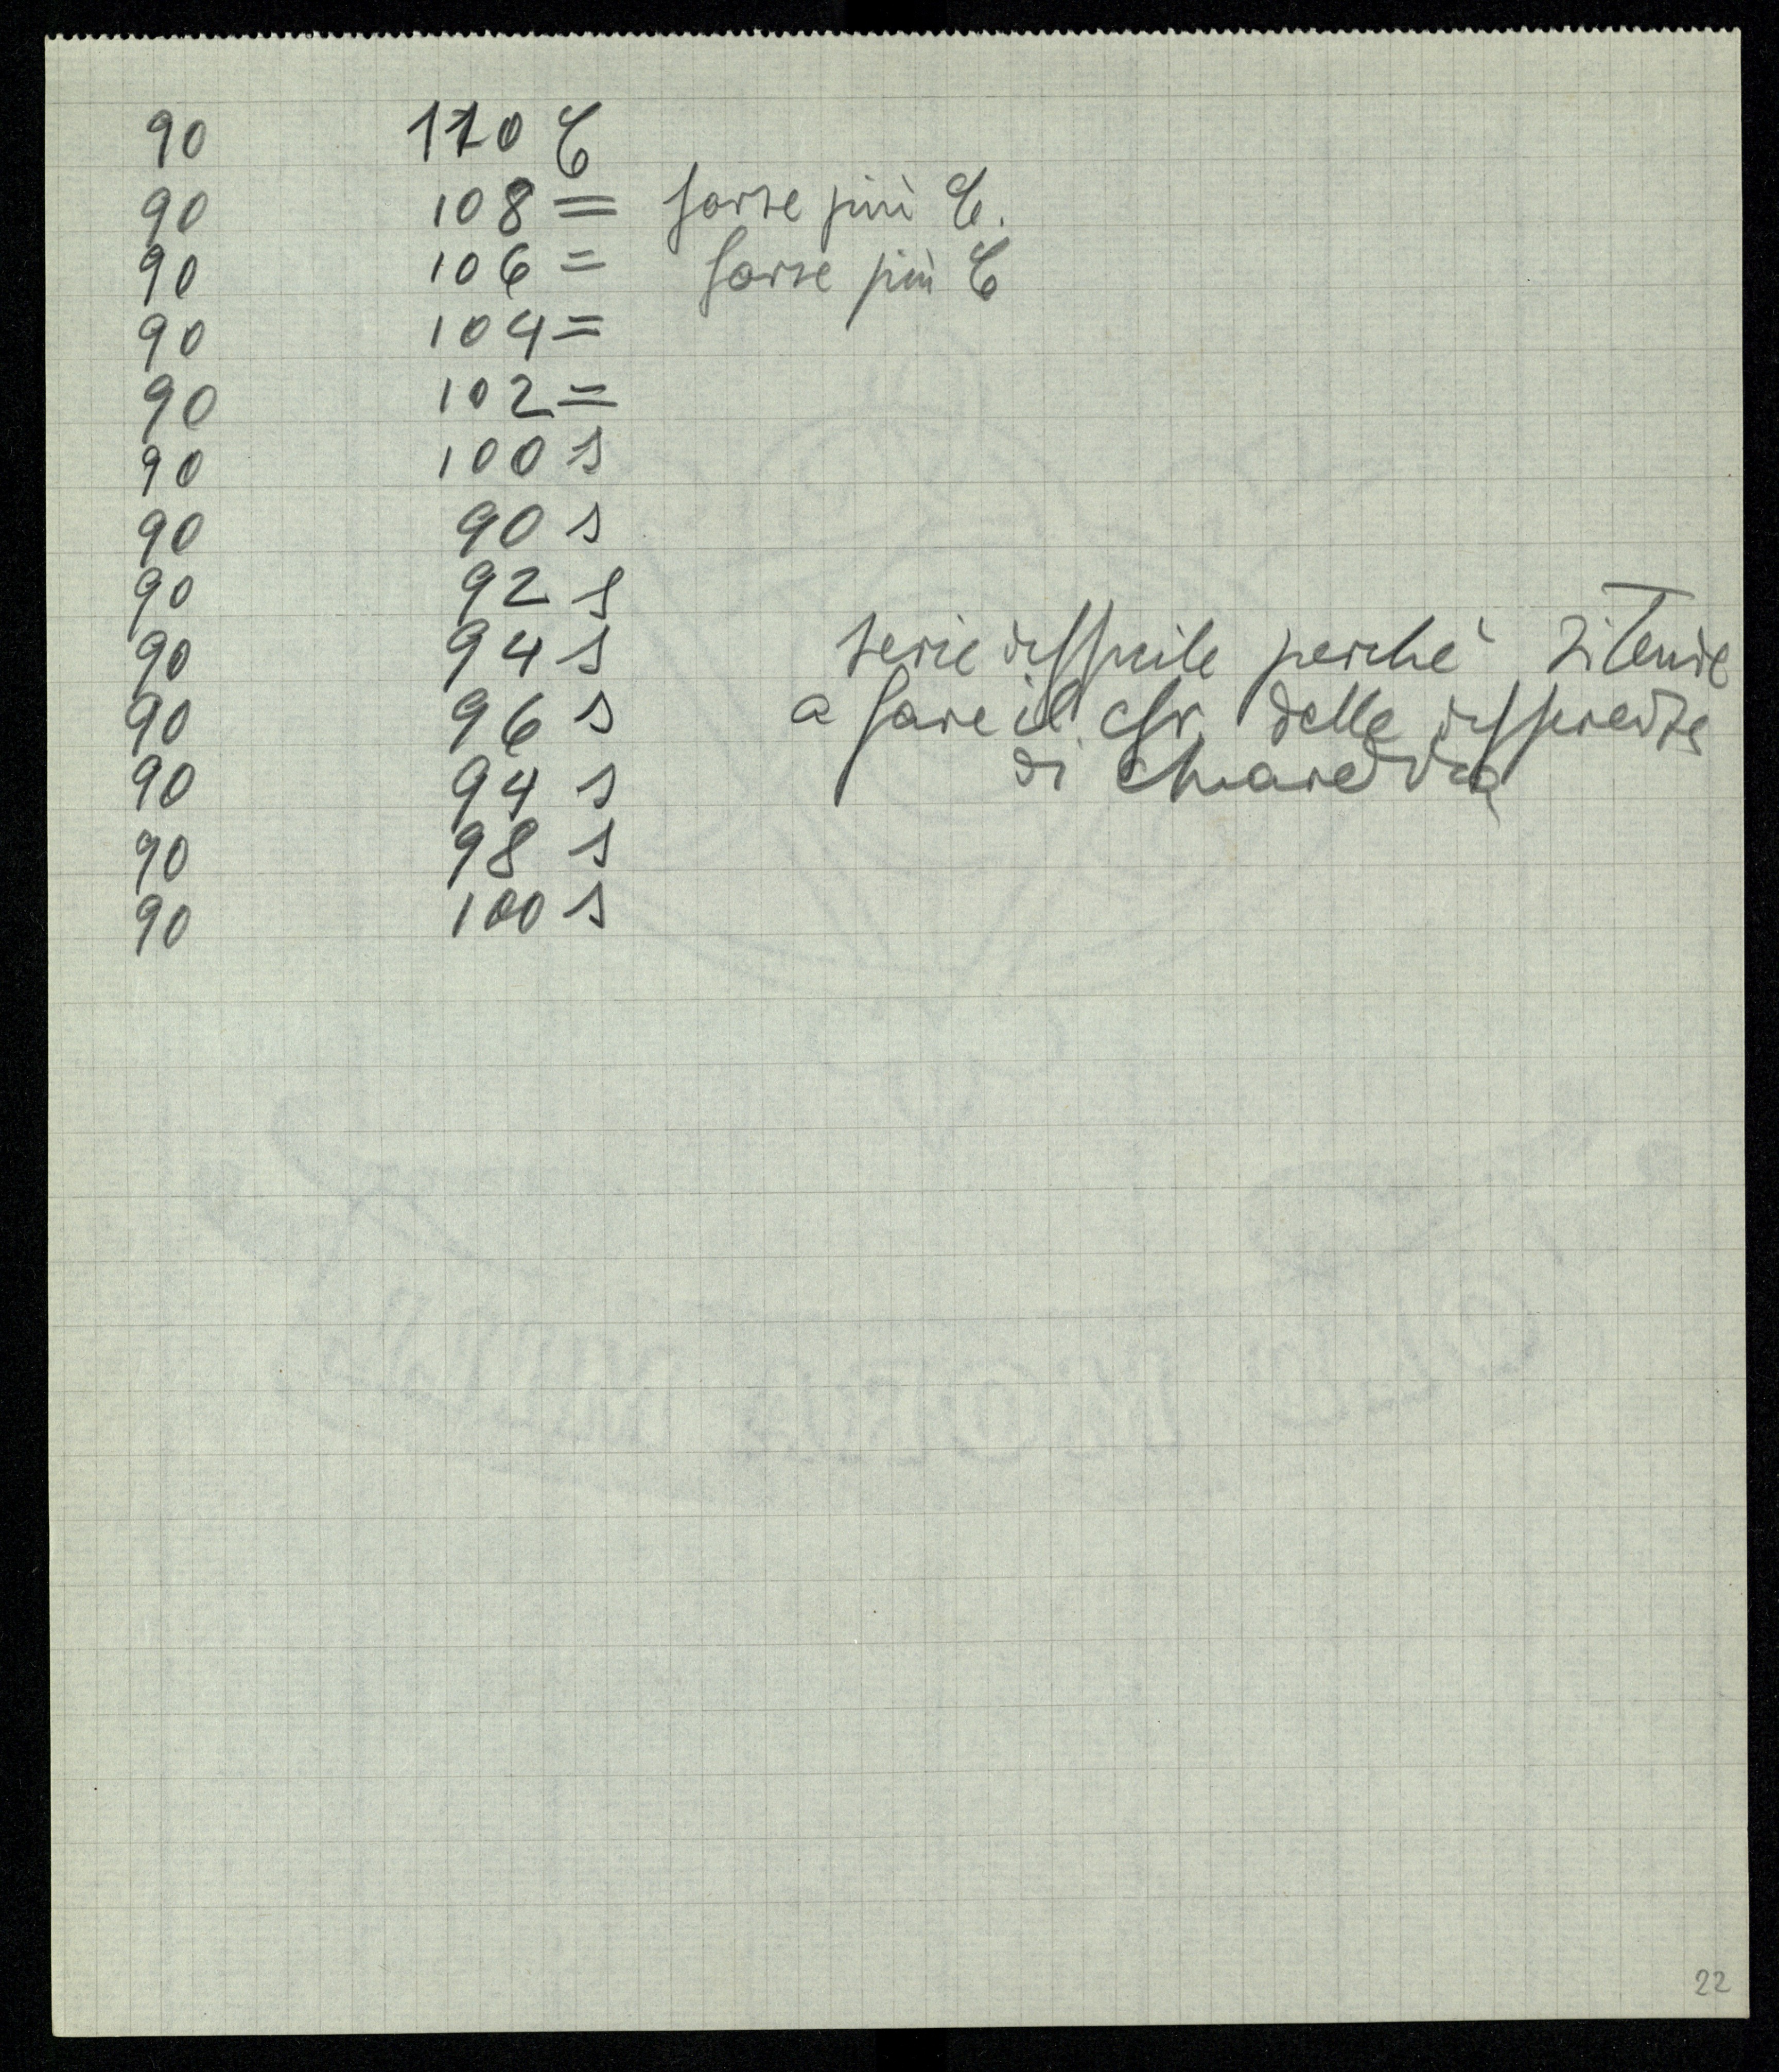 90 110 C
90 108 = forse più C.
90 106 = forse più C
90 104 =
90 102 =
90 100 s
90 90 s
90 92 s
90 94 s serie difficile perché si tende
90 96 s a fare il cfr. delle differenze
90 94 s di chiarezza
90 98 s
90 100 s
22